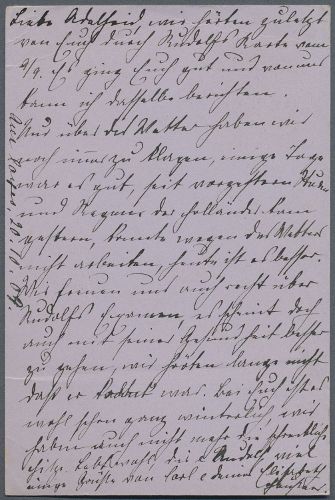 Liebe Adelheid wir hörten zuletzt
von Euch durch Rudolfs Karte vom
9/9. Es ging Euch gut und von uns
kann ich dasselbe berichten.
Nur über das Wetter haben wir
noch immer zu klagen, einige Tage
war es gut, seit vorgestern Sturm
und Regen, der Holländer kam
gestern, konnte wegen des Wetters
nicht arbeiten, heute ist es besser.
Wir freuen uns auch recht über
Rudolfs Examen, es scheint doch
auch mit seiner Gesundheit besser
zu gehen, wir hörten lange nicht
daß er krank war. Bei Euch ist es
wohl schon ganz winterlich, wir
haben auch nicht mehr die schreckliche
Hitze. Lebt wohl, die Rudolf viel
Grüße von Carl & deine Elisabeth